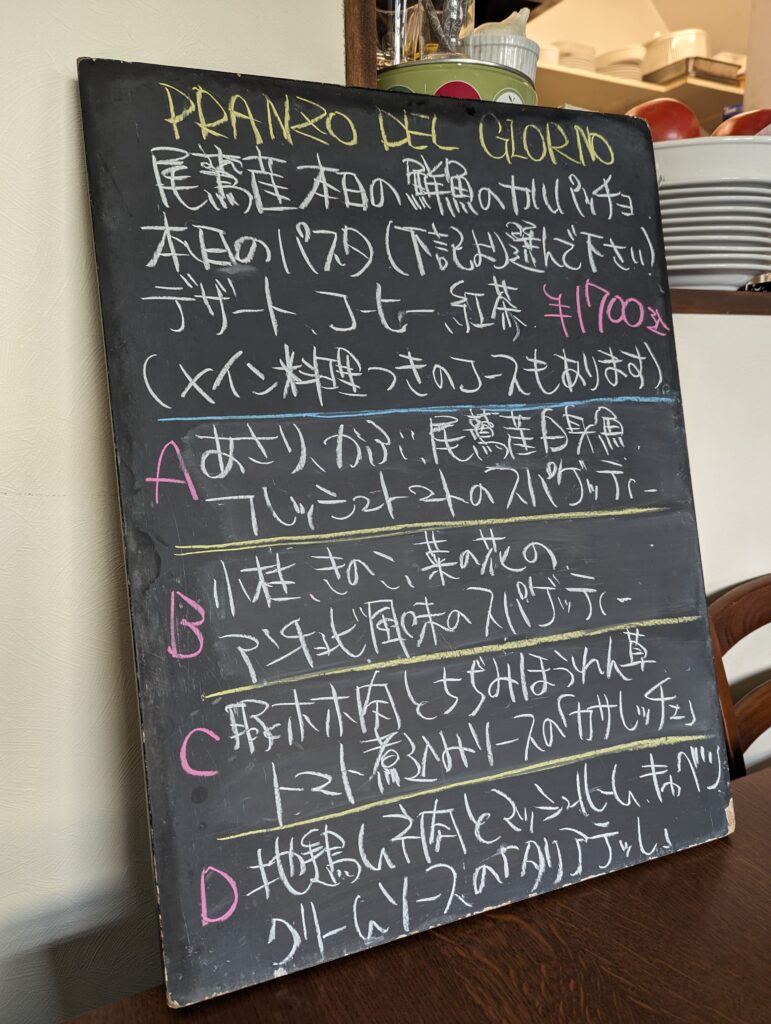 PRANZO DEL GIORNO
尾鷲産本日の鮮魚のカルパッチョ
本日のパスタ(下記より選んで下さい)
デザート、コーヒー、紅茶 ¥1700込
(メイン料理つきのコースもあります)
A あさり、かぶ、尾鷲産白身魚
フレッシュトマトのスパゲッティー
B 小柱、きのこ、菜の花の
アンチョビ風味のスパゲッティー
C 豚ホホ肉とちぢみほうれん草
トマト煮込みソースの「カサレッチェ」
D 地鶏ムネ肉とマッシュルーム、キャベツ
クリームソースの「タリアテッレ」